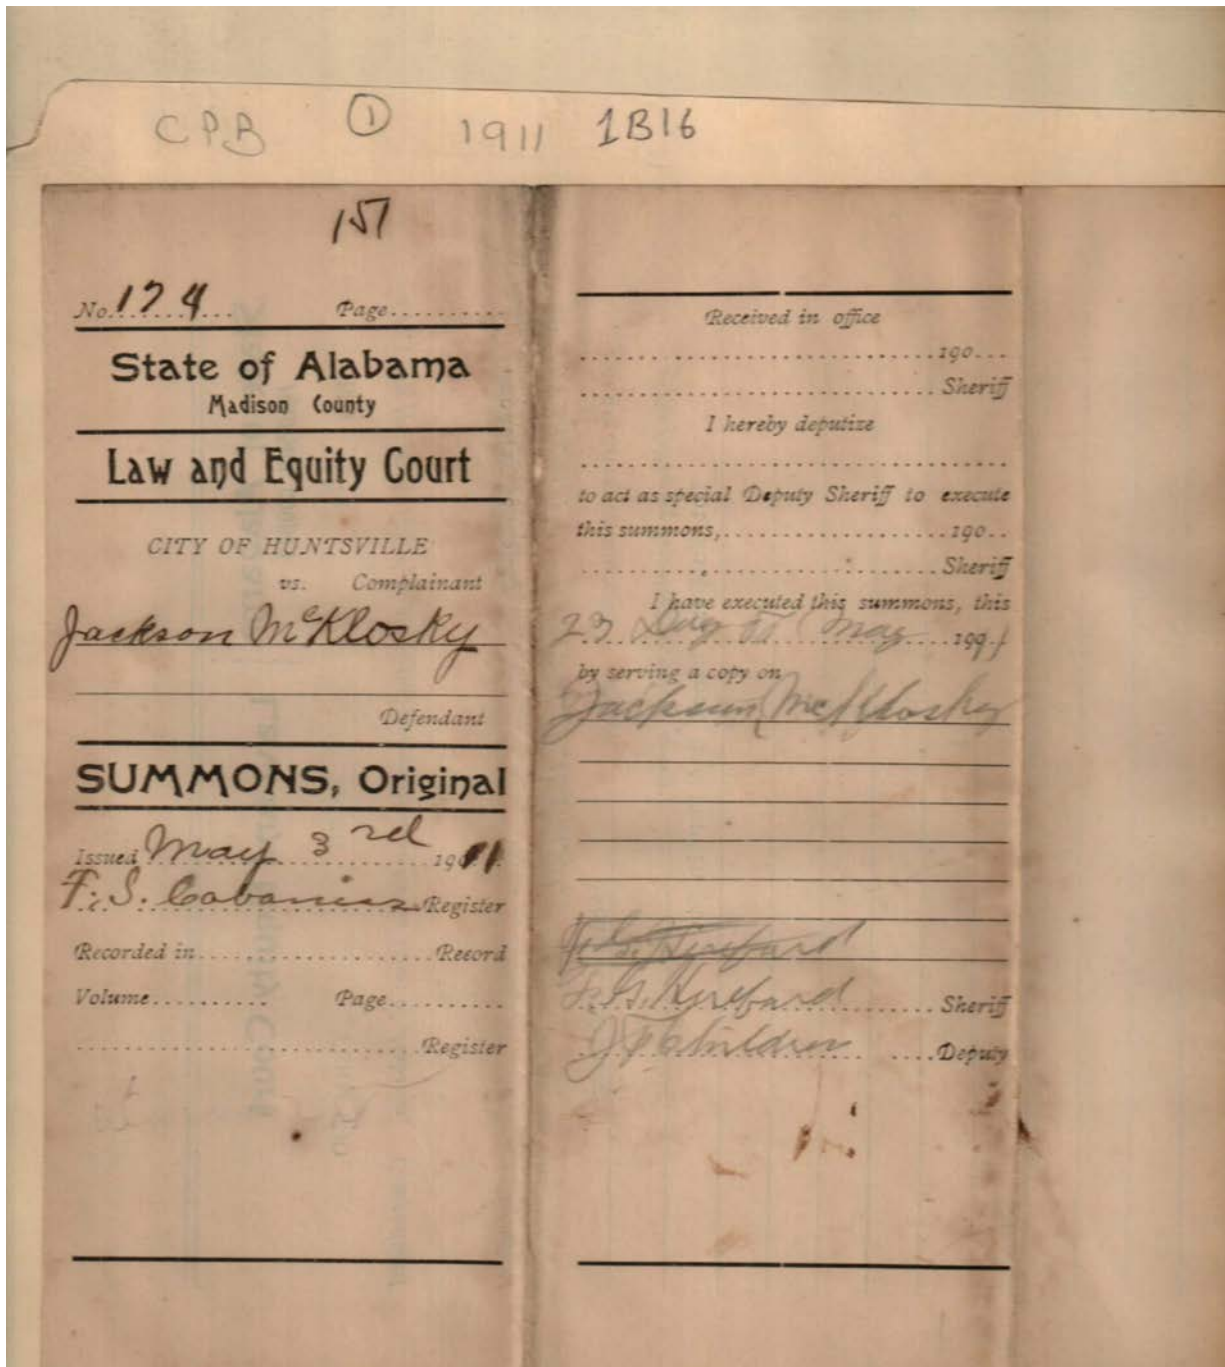 CPB ① 1911 1B16
151
No. 124 Page
State of Alabama
Madison County
Law and Equity Court
CITY OF HUNTSVILLE
vs. Complainant
Jackson McKlosky
Defendant
SUMMONS, Original
Issued May 3rd 1911
F. S. Cabaniss Register
Recorded in Record
Volume Page
Register
Received in office
190
Sheriff
I hereby deputize
to act as special Deputy Sheriff to execute
this summons, 190
Sheriff
I have executed this summons, this
23 Day of May 191
by serving a copy on
Jackson McKlosky
Sheriff
Deputy